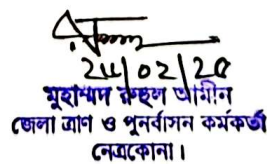 24/02/25
মুহাম্মদ রুহুল আমীন
জেলা ত্রাণ ও পুনর্বাসন কর্মকর্তা
নেত্রকোনা।